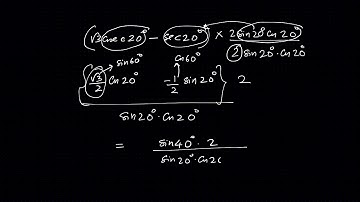 (√3 cosec 20° − sec 20°) × 2 sin 20° cos 20°
2 sin 20° · cos 20°
sin 60° cos 60°
{ √3/2 cos 20° − 1/2 sin 20° } 2
sin 20° · cos 20°
= sin 40° · 2
sin 20° · cos 20